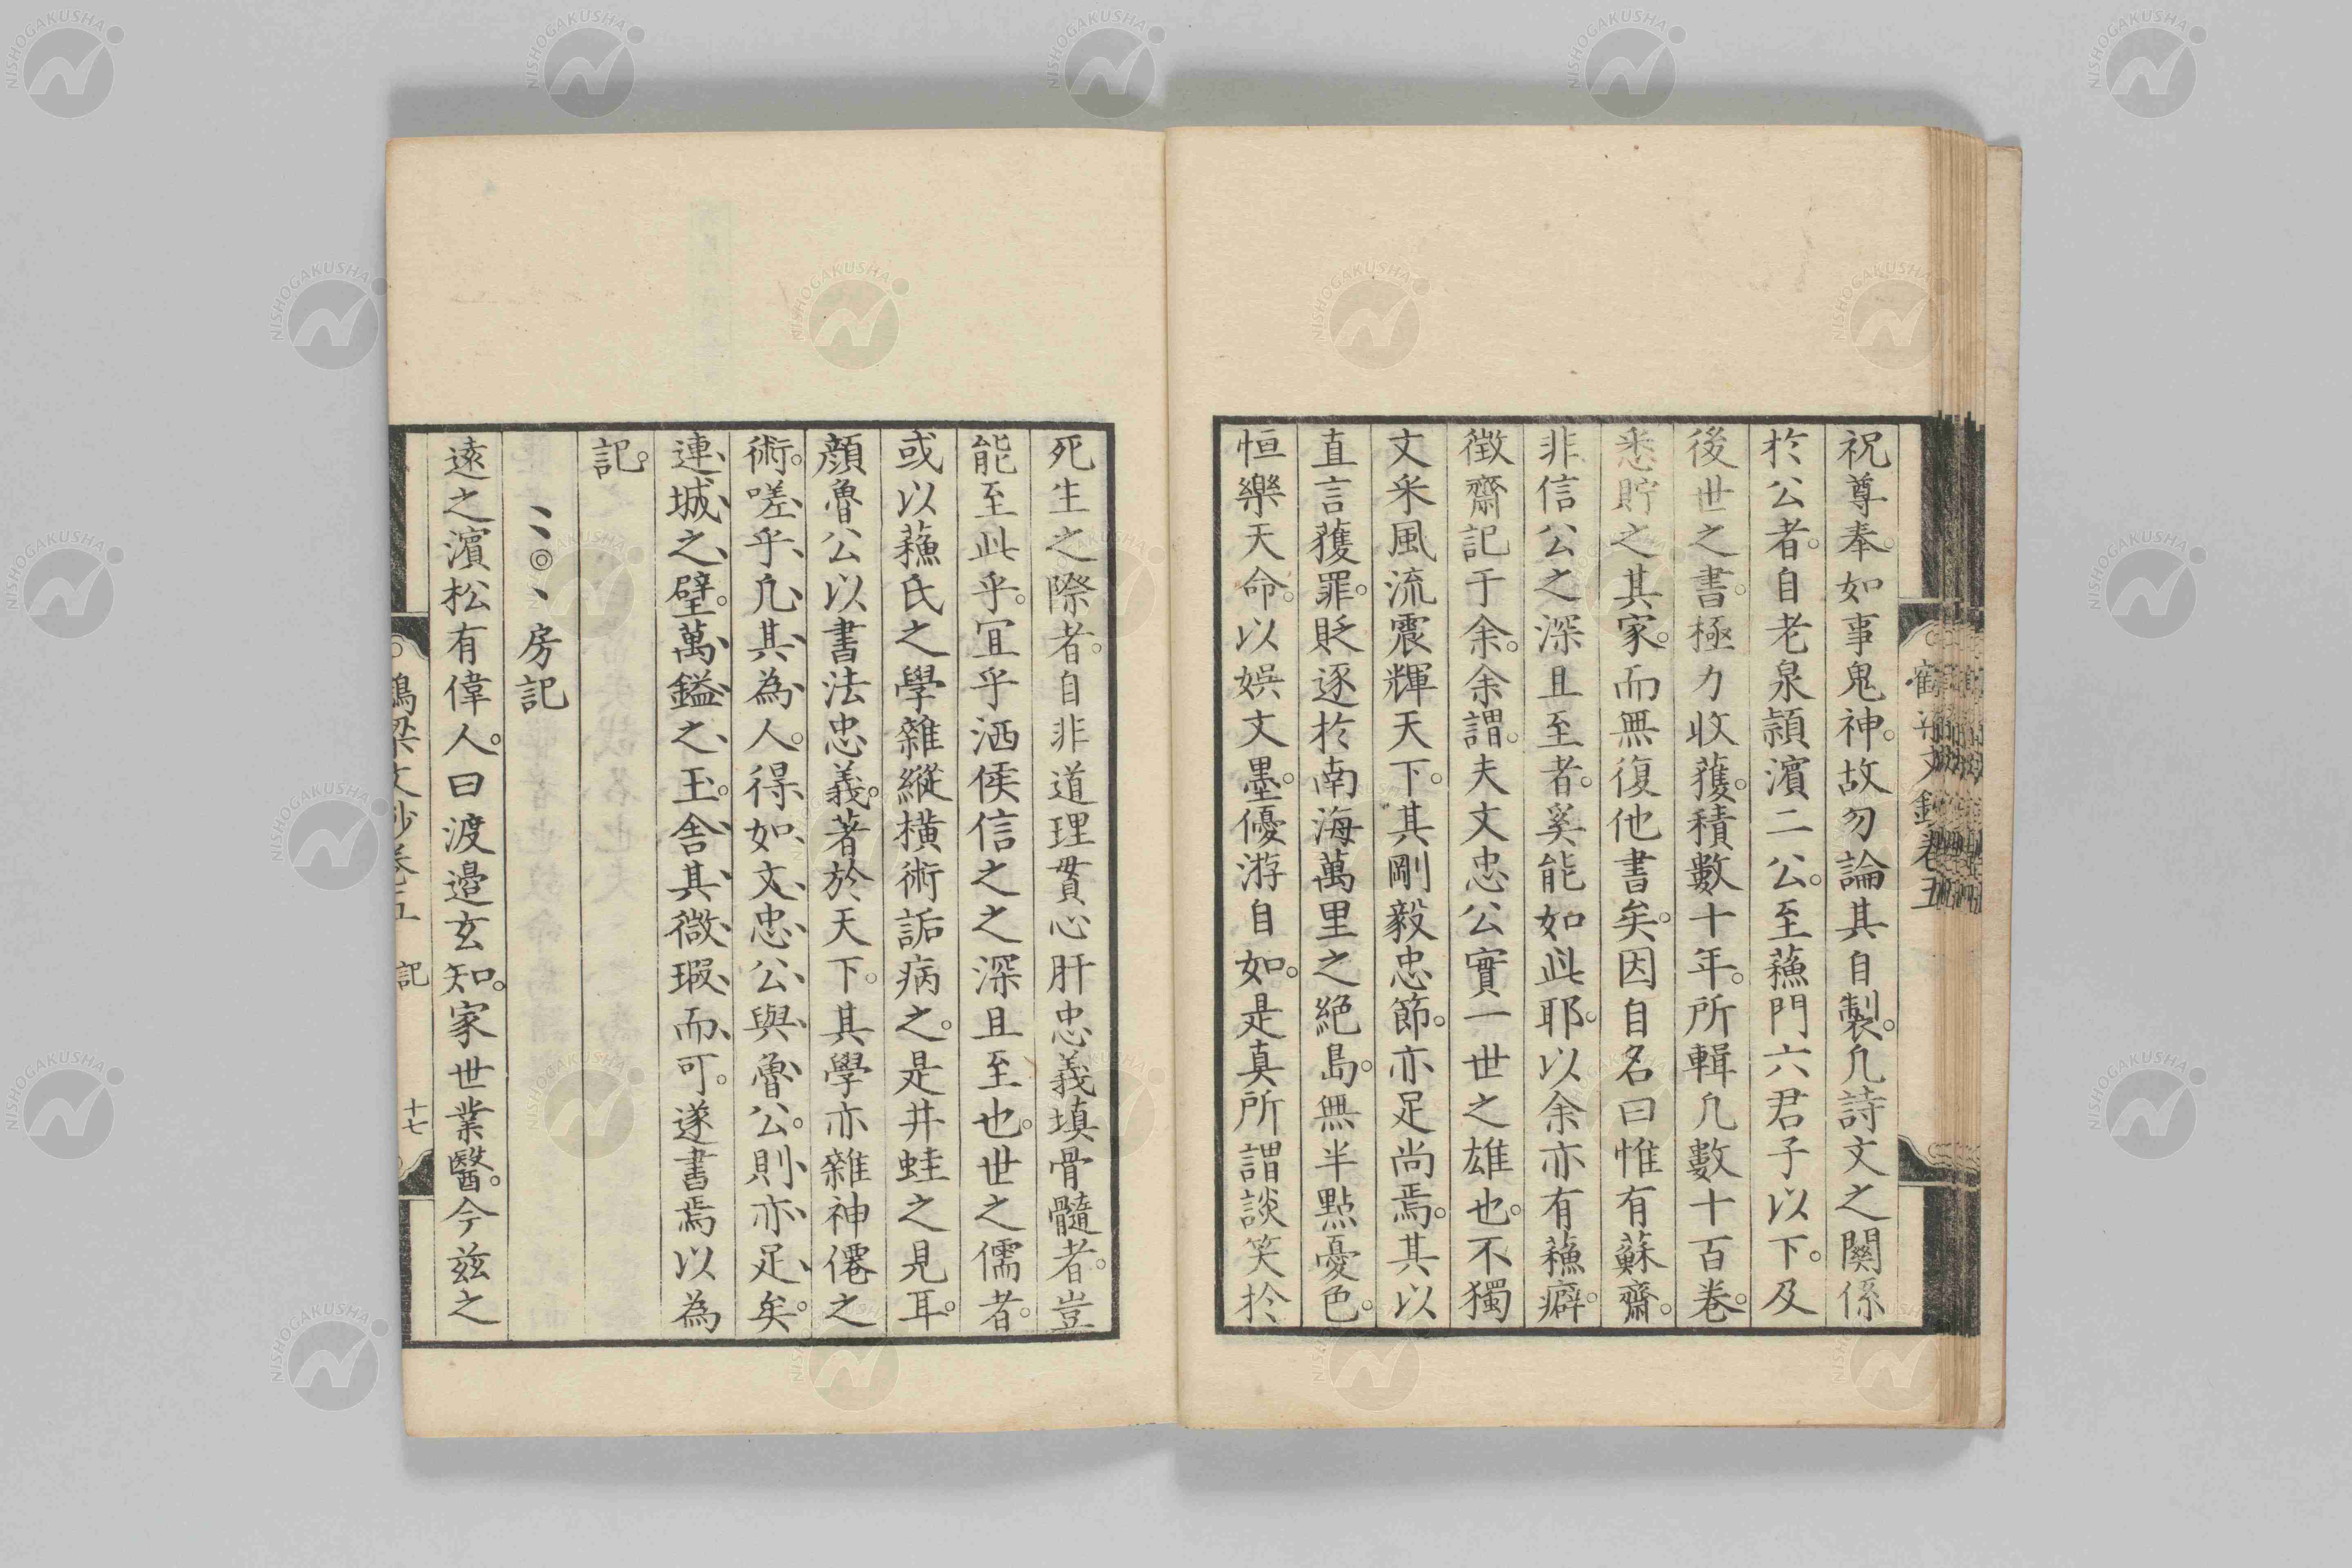 祝尊奉。如事鬼神。故勿論其自製。凡詩文之關係
於公者。自老泉頴濱二公。至蘓門六君子以下。及
後世之書。極力收蒦。積數十年。所輯凡數十百卷。
悉貯之其家。而無復他書矣。因自名曰惟有蘇齋。
非信公之深且至者。奚能如此耶。以余亦有蘓癖。
徴齋記于余。余謂。夫文忠公實一世之雄也。不獨
文釆風流震輝天下。其剛毅忠節。亦足尚焉。其以
直言獲罪。貶逐於南海萬里之絕島。無半點憂色。
恒樂天命。以娯文墨。優游自如。是真所謂談笑於
死生之際者。自非道理貫心肝忠義填骨髓者。豈
能至此乎。宜乎洒侯信之之深且至也。世之儒者。
或以蘓氏之學雜縱横術詬病之。是井蛙之見耳。
顔魯公以書法忠義。著於天下。其學亦雜神僊之
術。嗟乎、凡其為人。得如文忠公與魯公。則亦足矣。
連城之璧。萬鎰之玉。舎其微瑕而可。遂書焉以為
記。
ミ◎、房記
遠之濱松有偉人。曰渡邉玄知。家世業醫。今玆之
鶴梁文鈔卷五 記 十七
NISHOGAKUSHA